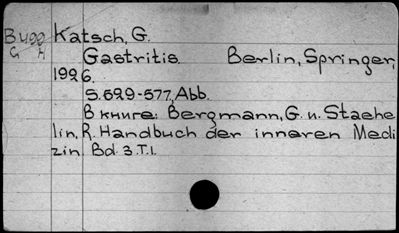 Katsch, G.
Gastritis. Berlin, Springer,
1926.
S. 529-577, Abb.
В книге: Bergmann, G. u. Staehe
lin, R. Handbuch der inneren Medi
zin Bd. 3. T. I.